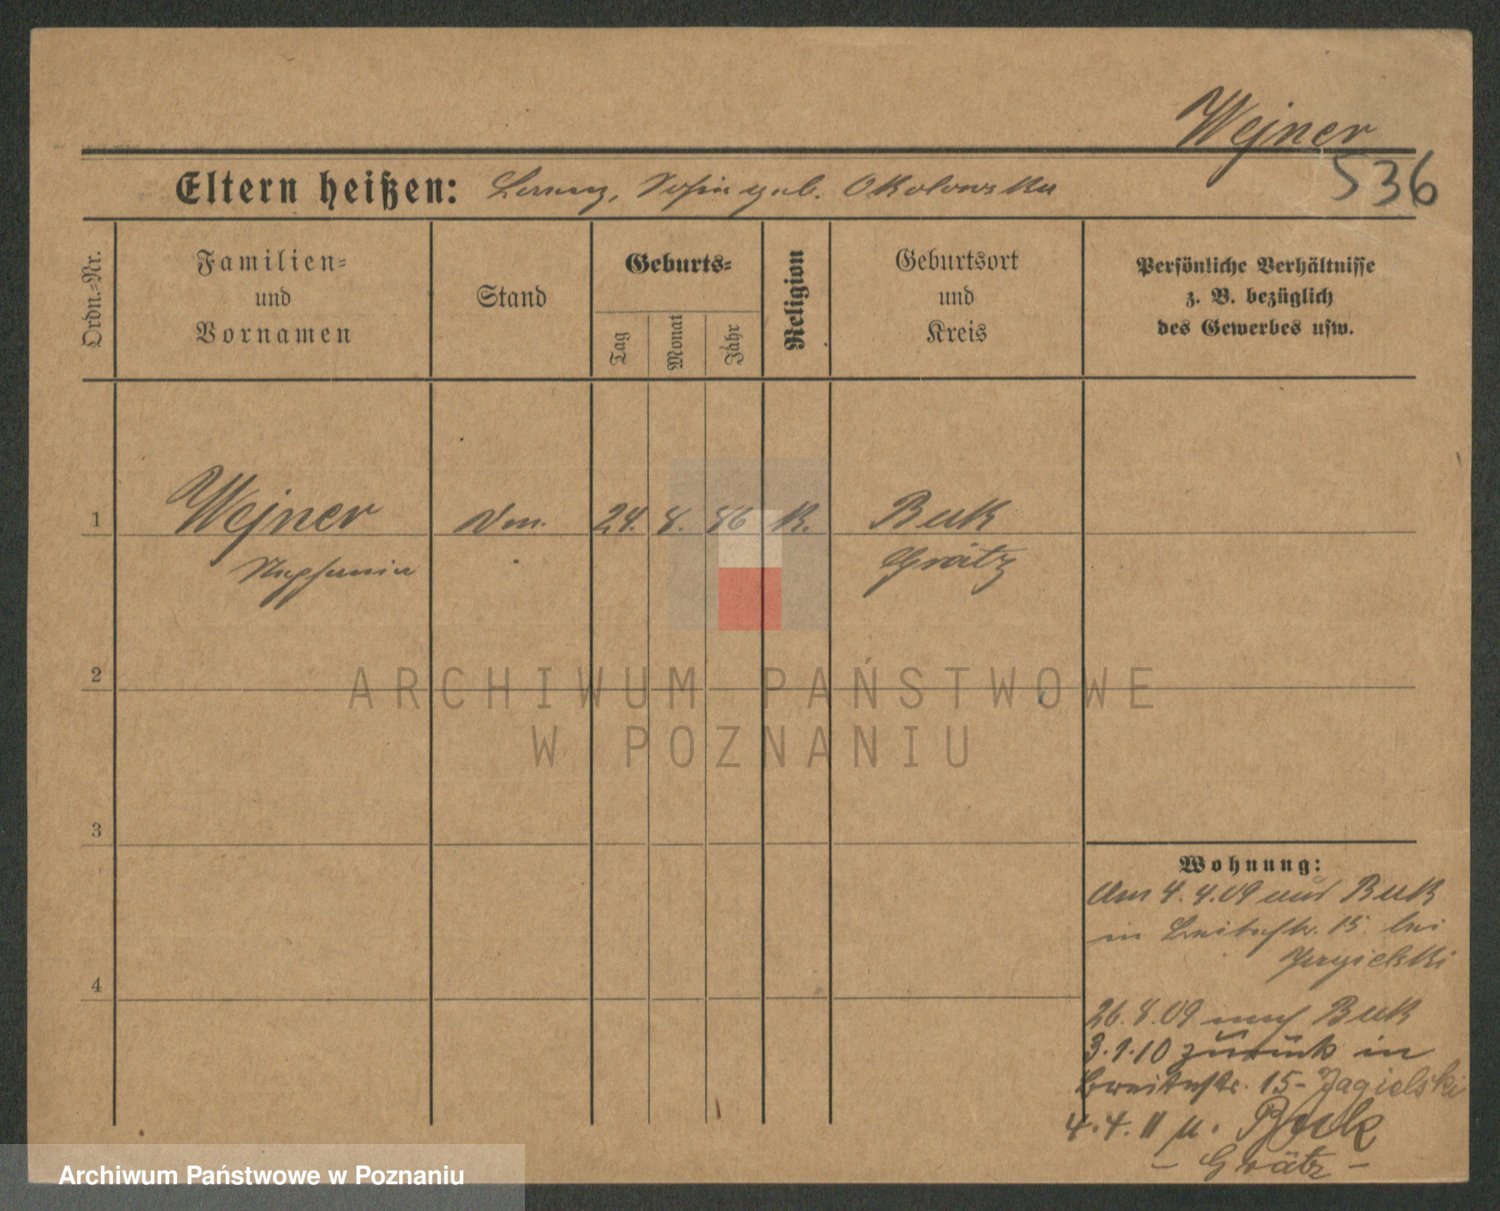 Wejner
536
Eltern heißen: Lorenz, Sofia geb. Okolowska
Ordn.-Nr.
Familien-
und
Vornamen
Stand
Geburts-
Tag
Monat
Jahr
Religion
Geburtsort
und
Kreis
Persönliche Verhältnisse
z. B. bezüglich
des Gewerbes usw.
1
Wejner
24. 8. 86 K.
Buk
Stephania
Grätz
2
ARCHIWUM PAŃSTWOWE
W POZNANIU
3
Wohnung:
Am 4. 4. 09 aus Buk
in Breitestr. 15. bei
Jagielski
4
26. 8. 09 nach Buk
3.1.10 zurück in
Breitestr. 15 - Jagielski
4.4.11 n. Buk
- Grätz -
Archiwum Państwowe w Poznaniu